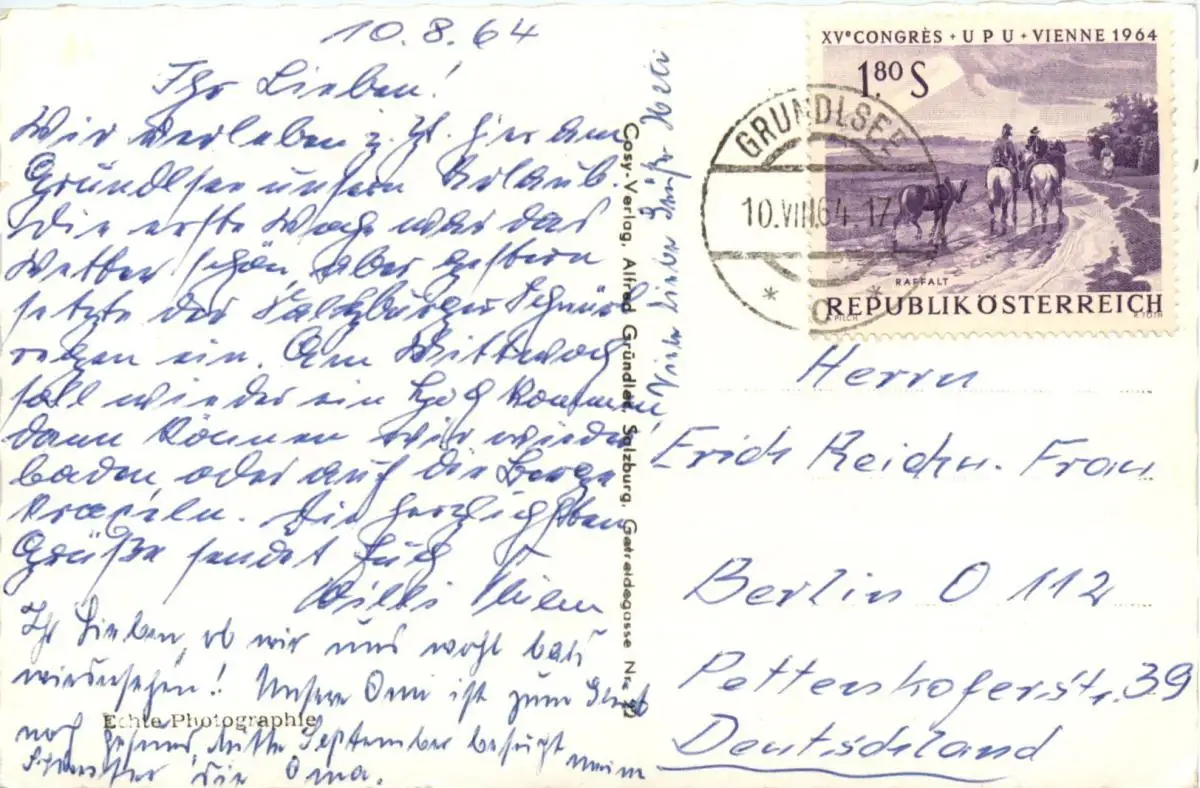 10.8.64
Ihr Lieben!
Wir verleben z. Zt. hier am
Grundlsee unsern Urlaub.
Die erste Woche war das
Wetter schön, aber gestern
setzte der Salzburger Schnürl
regen ein. Am Mittwoch
soll wieder ein Hoch kommen,
dann können wir wieder
baden oder auf die Berge
kraxeln. Die herzlichsten
Grüße sendet Euch
Willi
Ihr Lieben, ob wir uns wohl bald
wiedersehen! Unsere Omi ist zum Glück
noch gesund, Mitte September besucht meine
Schwester die Oma.
Viele liebe Grüße
Echte Photographie
Cosy-Verlag, Alfred Gründler, Salzburg, Getreidegasse Nr. 22
XVe CONGRÈS · UPU · VIENNE 1964
1.80 S
RAFFALT
REPUBLIK ÖSTERREICH
A. PILCH
R. TOTH
GRUNDLSEE
10.VIII.64.17
Herrn
Erich Reichn. Frau
Berlin O 112
Pettenkoferstr. 39
Deutschland